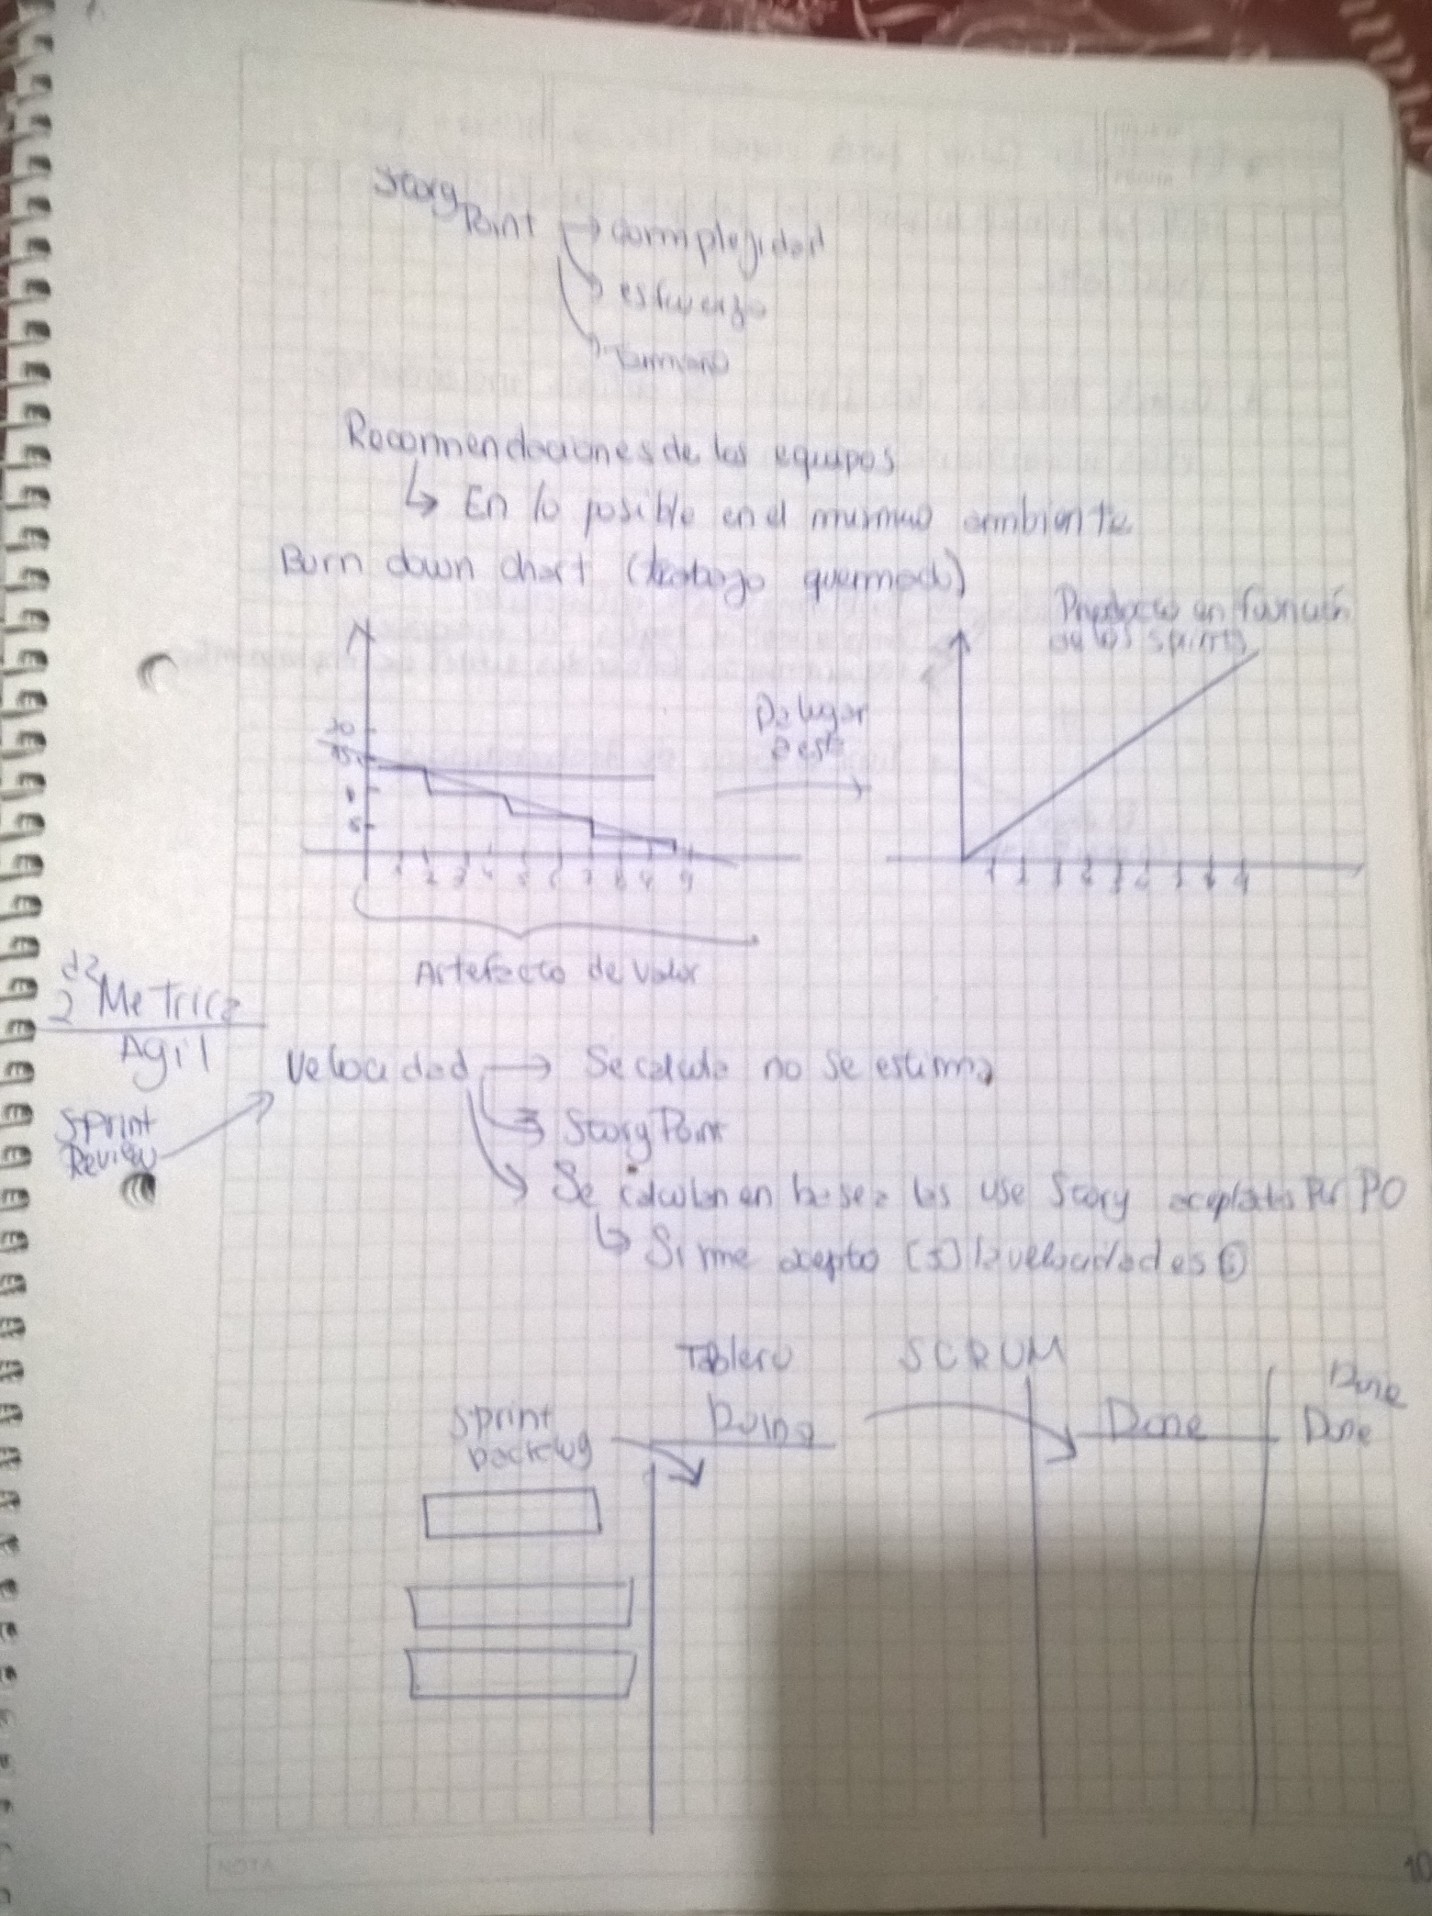 Story
Point → complejidad
esfuerzo
Tamaño
Recomendaciones de los equipos
↳ En lo posible en el mismo ambiente
Burn down chart (trabajo quemado)
Producto en función
de los sprints
Da lugar
a esto
20
15
5
1 2 3 4 5 6 7 8 9
Artefacto de valor
2 Metrica
Agil
Velocidad → Se calcula no se estima
Sprint
Review
Story Point
Se calculan en base a las use Story aceptadas Por PO
↳ Si me acepto (5) la velocidad es
Tablero SCRUM
Sprint
backlog
Doing
Done
Done
Done
NOTA
10